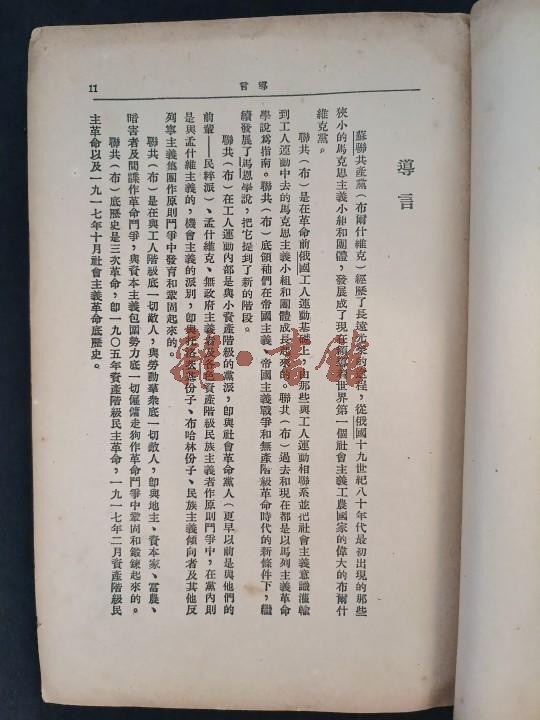 11
導言
導言
蘇聯共產黨(布爾什維克)經歷了長遠光榮的途程,從俄國十九世紀八十年代最初出現的那些
狹小的馬克思主義小組和團體,發展成了現在領導着世界第一個社會主義工農國家的偉大的布爾什
維克黨。
聯共(布)是在革命前俄國工人運動基礎上,由那些與工人運動相聯系並把社會主義意識灌輸
到工人運動中去的馬克思主義小組和團體成長起來的。聯共(布)過去和現在都是以馬列主義革命
學說爲指南。聯共(布)底領袖們在帝國主義、帝國主義戰爭和無產階級革命時代的新條件下,繼
續發展了馬恩學說,把它提到了新的階段。
聯共(布)在工人運動內部是與小資產階級的黨派,卽與社會革命黨人(更早以前是與他們的
前輩——民粹派)、孟什維克、無政府主義者及各色資產階級民族主義者作原則鬥爭中,在黨內則
是與孟什維主義的,機會主義的派別,卽與托洛茨基份子、布哈林份子、民族主義傾向者及其他反
列寧主義集團作原則鬥爭中發育和鞏固起來的。
聯共(布)是在與工人階級底一切敵人,與勞動羣衆底一切敵人,卽與地主、資本家、富農、
暗害者及間諜作革命鬥爭,與資本主義包圍勢力底一切僱傭走狗作革命鬥爭中鞏固和鍛鍊起來的。
聯共(布)底歷史是三次革命,卽一九〇五年資產階級民主革命,一九一七年二月資產階級民
主革命以及一九一七年十月社會主義革命底歷史。